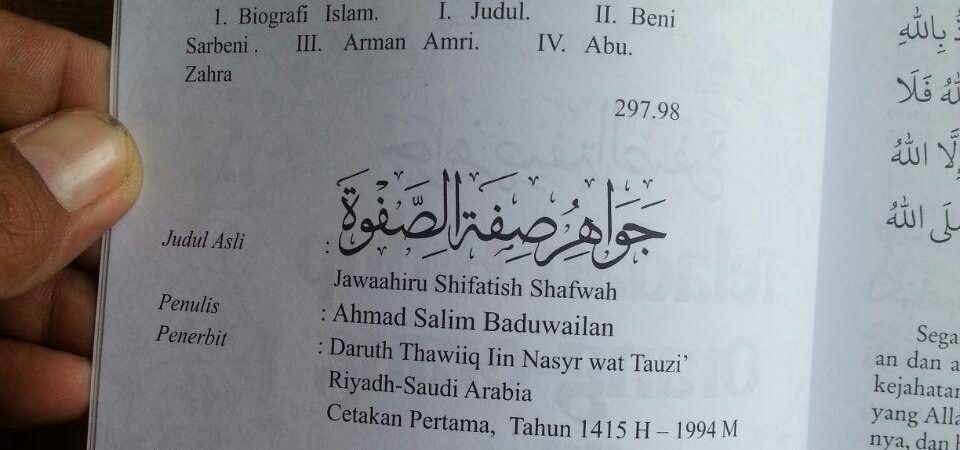 1. Biografi Islam. I. Judul. II. Beni
Sarbeni . III. Arman Amri. IV. Abu.
Zahra
297.98
جَوَاهِرُ صِفَةِ الصَّفْوَةِ
Judul Asli :
Jawaahiru Shifatish Shafwah
Penulis : Ahmad Salim Baduwailan
Penerbit : Daruth Thawiiq Iin Nasyr wat Tauzi’
Riyadh-Saudi Arabia
Cetakan Pertama, Tahun 1415 H – 1994 M
بِاللهِ
فَلَا
إِلَّا اللهُ
اللهُ
Sega
an dan a
kejahatan
yang Alla
nya, dan